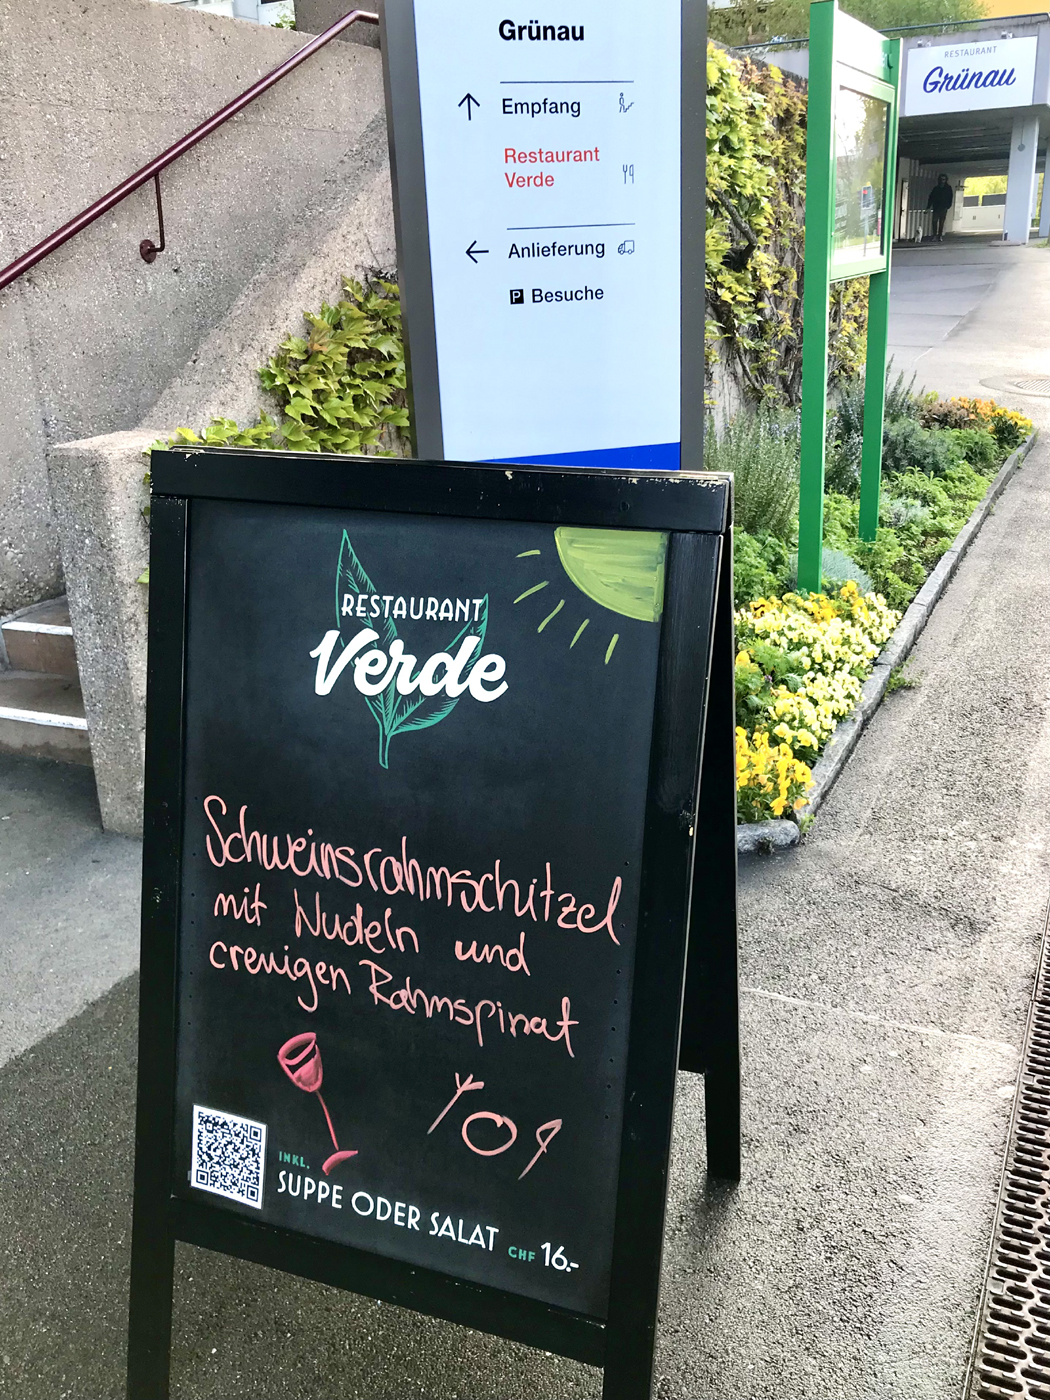 Grünau
Empfang
Restaurant
Verde
Anlieferung
P Besuche
RESTAURANT
Grünau
RESTAURANT
Verde
Schweinsrahmschitzel
mit Nudeln und
cremigen Rahmspinat
INKL.
SUPPE ODER SALAT CHF 16.-